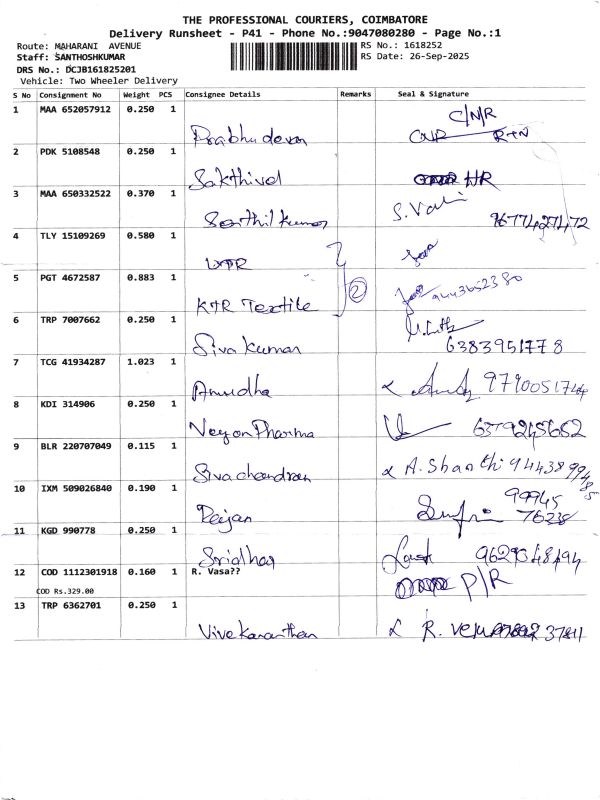 THE PROFESSIONAL COURIERS, COIMBATORE
Delivery Runsheet - P41 - Phone No.:9047080280 - Page No.:1
Route: MAHARANI AVENUE
RS No.: 1618252
Staff: SANTHOSHKUMAR
RS Date: 26-Sep-2025
DRS No.: DCJB161825201
Vehicle: Two Wheeler Delivery
S No Consignment No Weight PCS Consignee Details Remarks Seal & Signature
1 MAA 652057912 0.250 1 C/N/R
Prabhu devan
2 PDK 5108548 0.250 1
Sakthivel HR
3 MAA 650332522 0.370 1 S.
Senthil kumar 9677427472
4 TLY 15109269 0.580 1
5 PGT 4672587 0.883 1 2
KTR Textile 9443652380
6 TRP 7007662 0.250 1
Siva kumar 6383951778
7 TCG 41934287 1.023 1
Anusdha
8 KDI 314906 0.250 1
Neyon Pharma 6379245652
9 BLR 220707049 0.115 1
Sivachandran A. Shanthi
10 IXM 509026840 0.190 1 99945
Rajan
11 KGD 990778 0.250 1
Sridhar
12 COD 1112301918 0.160 1 R. Vasa??
COD Rs.329.00 P/R
13 TRP 6362701 0.250 1
Vivekananthan R.